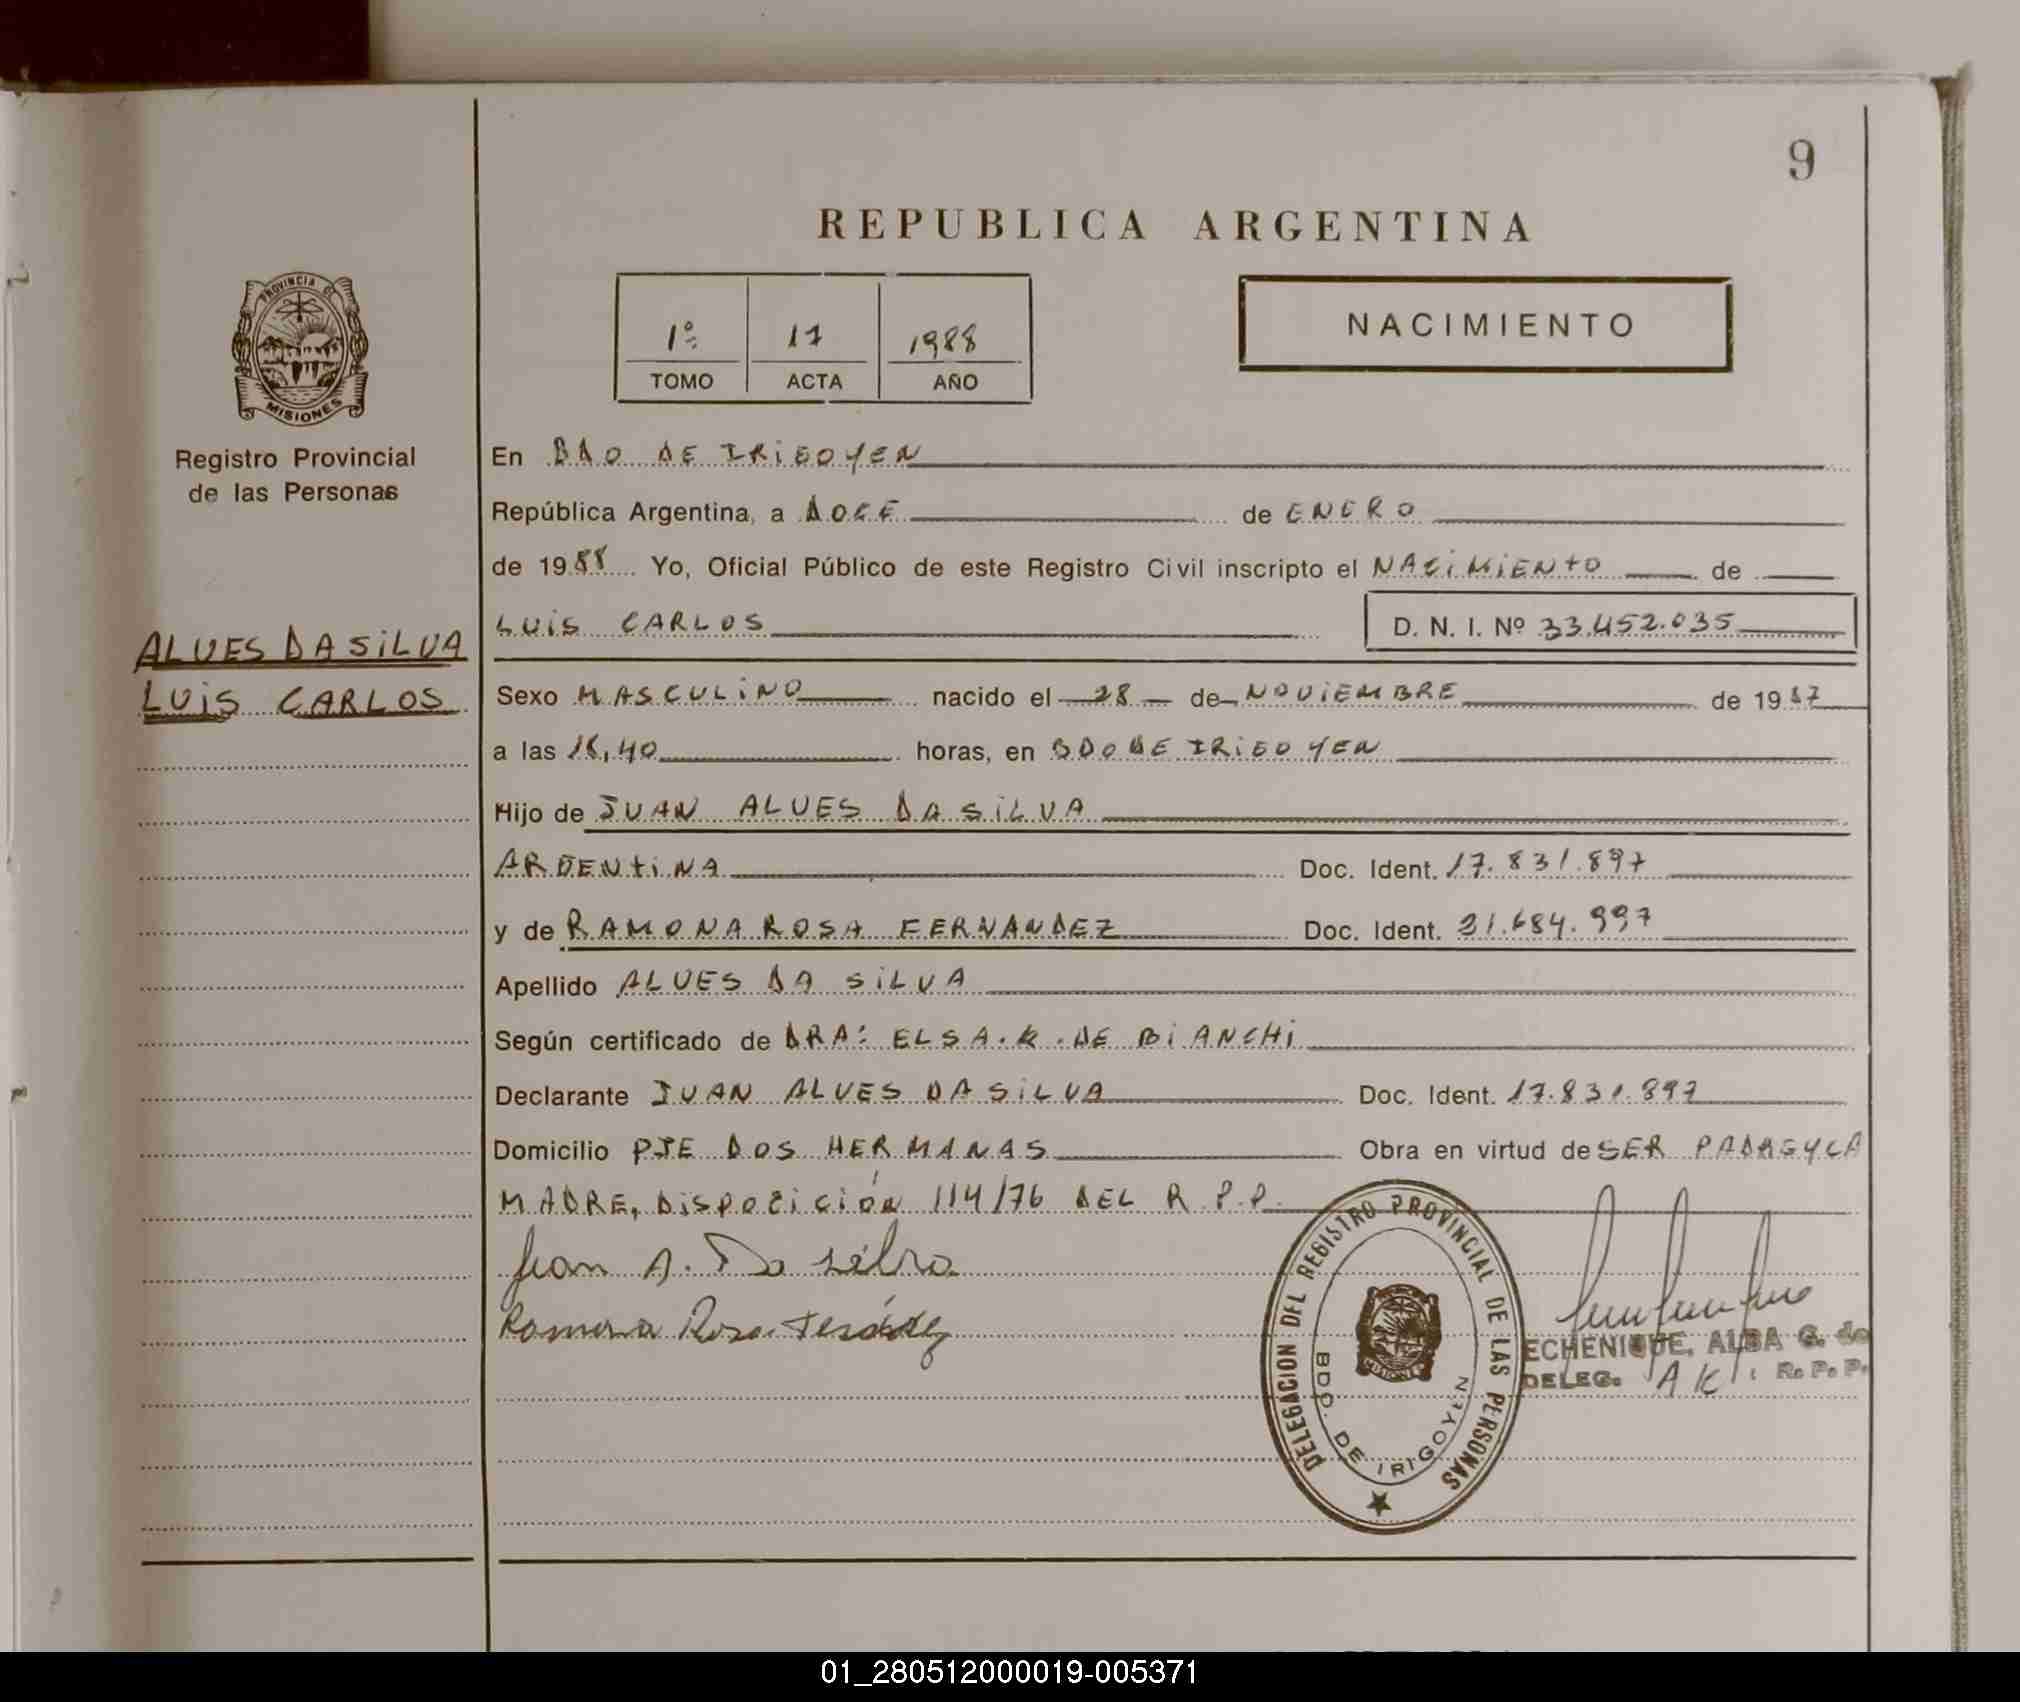 9
REPUBLICA ARGENTINA
1º 17 1988
TOMO ACTA AÑO
NACIMIENTO
PROVINCIA DE
MISIONES
Registro Provincial
de las Personas
ALVES DA SILVA
LUIS CARLOS
En BDO DE IRIGOYEN
República Argentina, a DOCE de ENERO
de 1988 Yo, Oficial Público de este Registro Civil inscripto el NACIMIENTO de
LUIS CARLOS D. N. I. Nº 33.452.035
Sexo MASCULINO nacido el 28 de NOVIEMBRE de 1987
a las horas, en BDO DE IRIGOYEN
Hijo de JUAN ALVES DA SILVA
ARGENTINA Doc. Ident. 17.831.897
y de RAMONA ROSA FERNANDEZ Doc. Ident. 21.684.997
Apellido ALVES DA SILVA
Según certificado de DRA: ELSA.K.DE BIANCHI
Declarante JUAN ALVES DA SILVA Doc. Ident. 17.831.897
Domicilio PJE DOS HERMANAS Obra en virtud de SER PADRE Y LA
MADRE, DISPOCICIÓN 114/76 DEL R.P.P.
Juan A. Da Silva
Ramona Rosa
DELEGACION DEL REGISTRO PROVINCIAL DE LAS PERSONAS
BDO. DE IRIGOYEN
MISIONES
ECHENIQUE, ALBA G. de
DELEG. R. P. P.
01_280512000019-005371